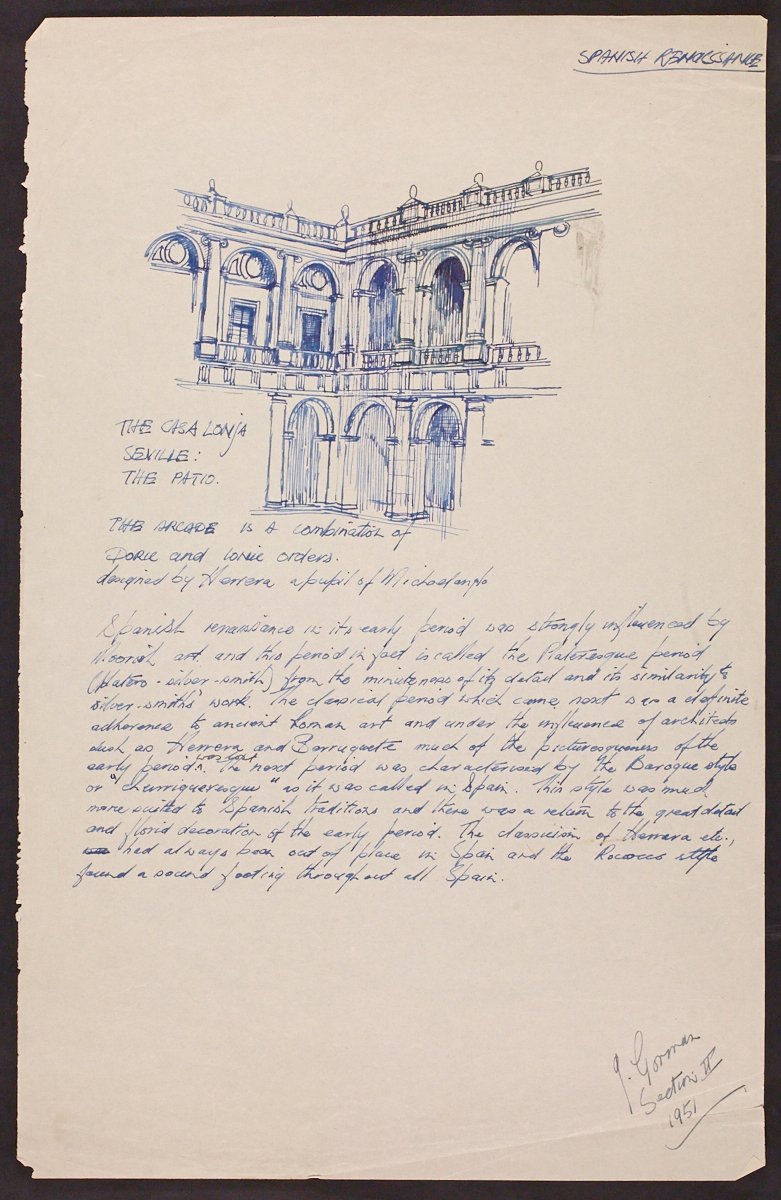 SPANISH RENAISSANCE
THE CASA LONJA
SEVILLE:
THE PATIO.
THE ARCADE IS A combination of
Doric and Ionic orders.
designed by Herrera a pupil of Michaelangelo
Spanish renaissance in its early period was strongly influenced by
Moorish art and this period in fact is called the Plateresque period
(platero - silver-smith) from the minuteness of its detail and its similarity to
silver-smiths' work. The classical period which came next was a definite
adherence to ancient Roman art and under the influence of architects
such as Herrera and Berruguete much of the picturesqueness of the
early period was lost. The next period was characterised by the Baroque style
or "churrigueresque" as it was called in Spain. This style was much
more suited to Spanish traditions and there was a return to the great detail
and florid decoration of the early period. The classicism of Herrera etc.,
had always been out of place in Spain and the Rococco style
found a sound footing throughout all Spain.
J. Gorman
Section II
1951